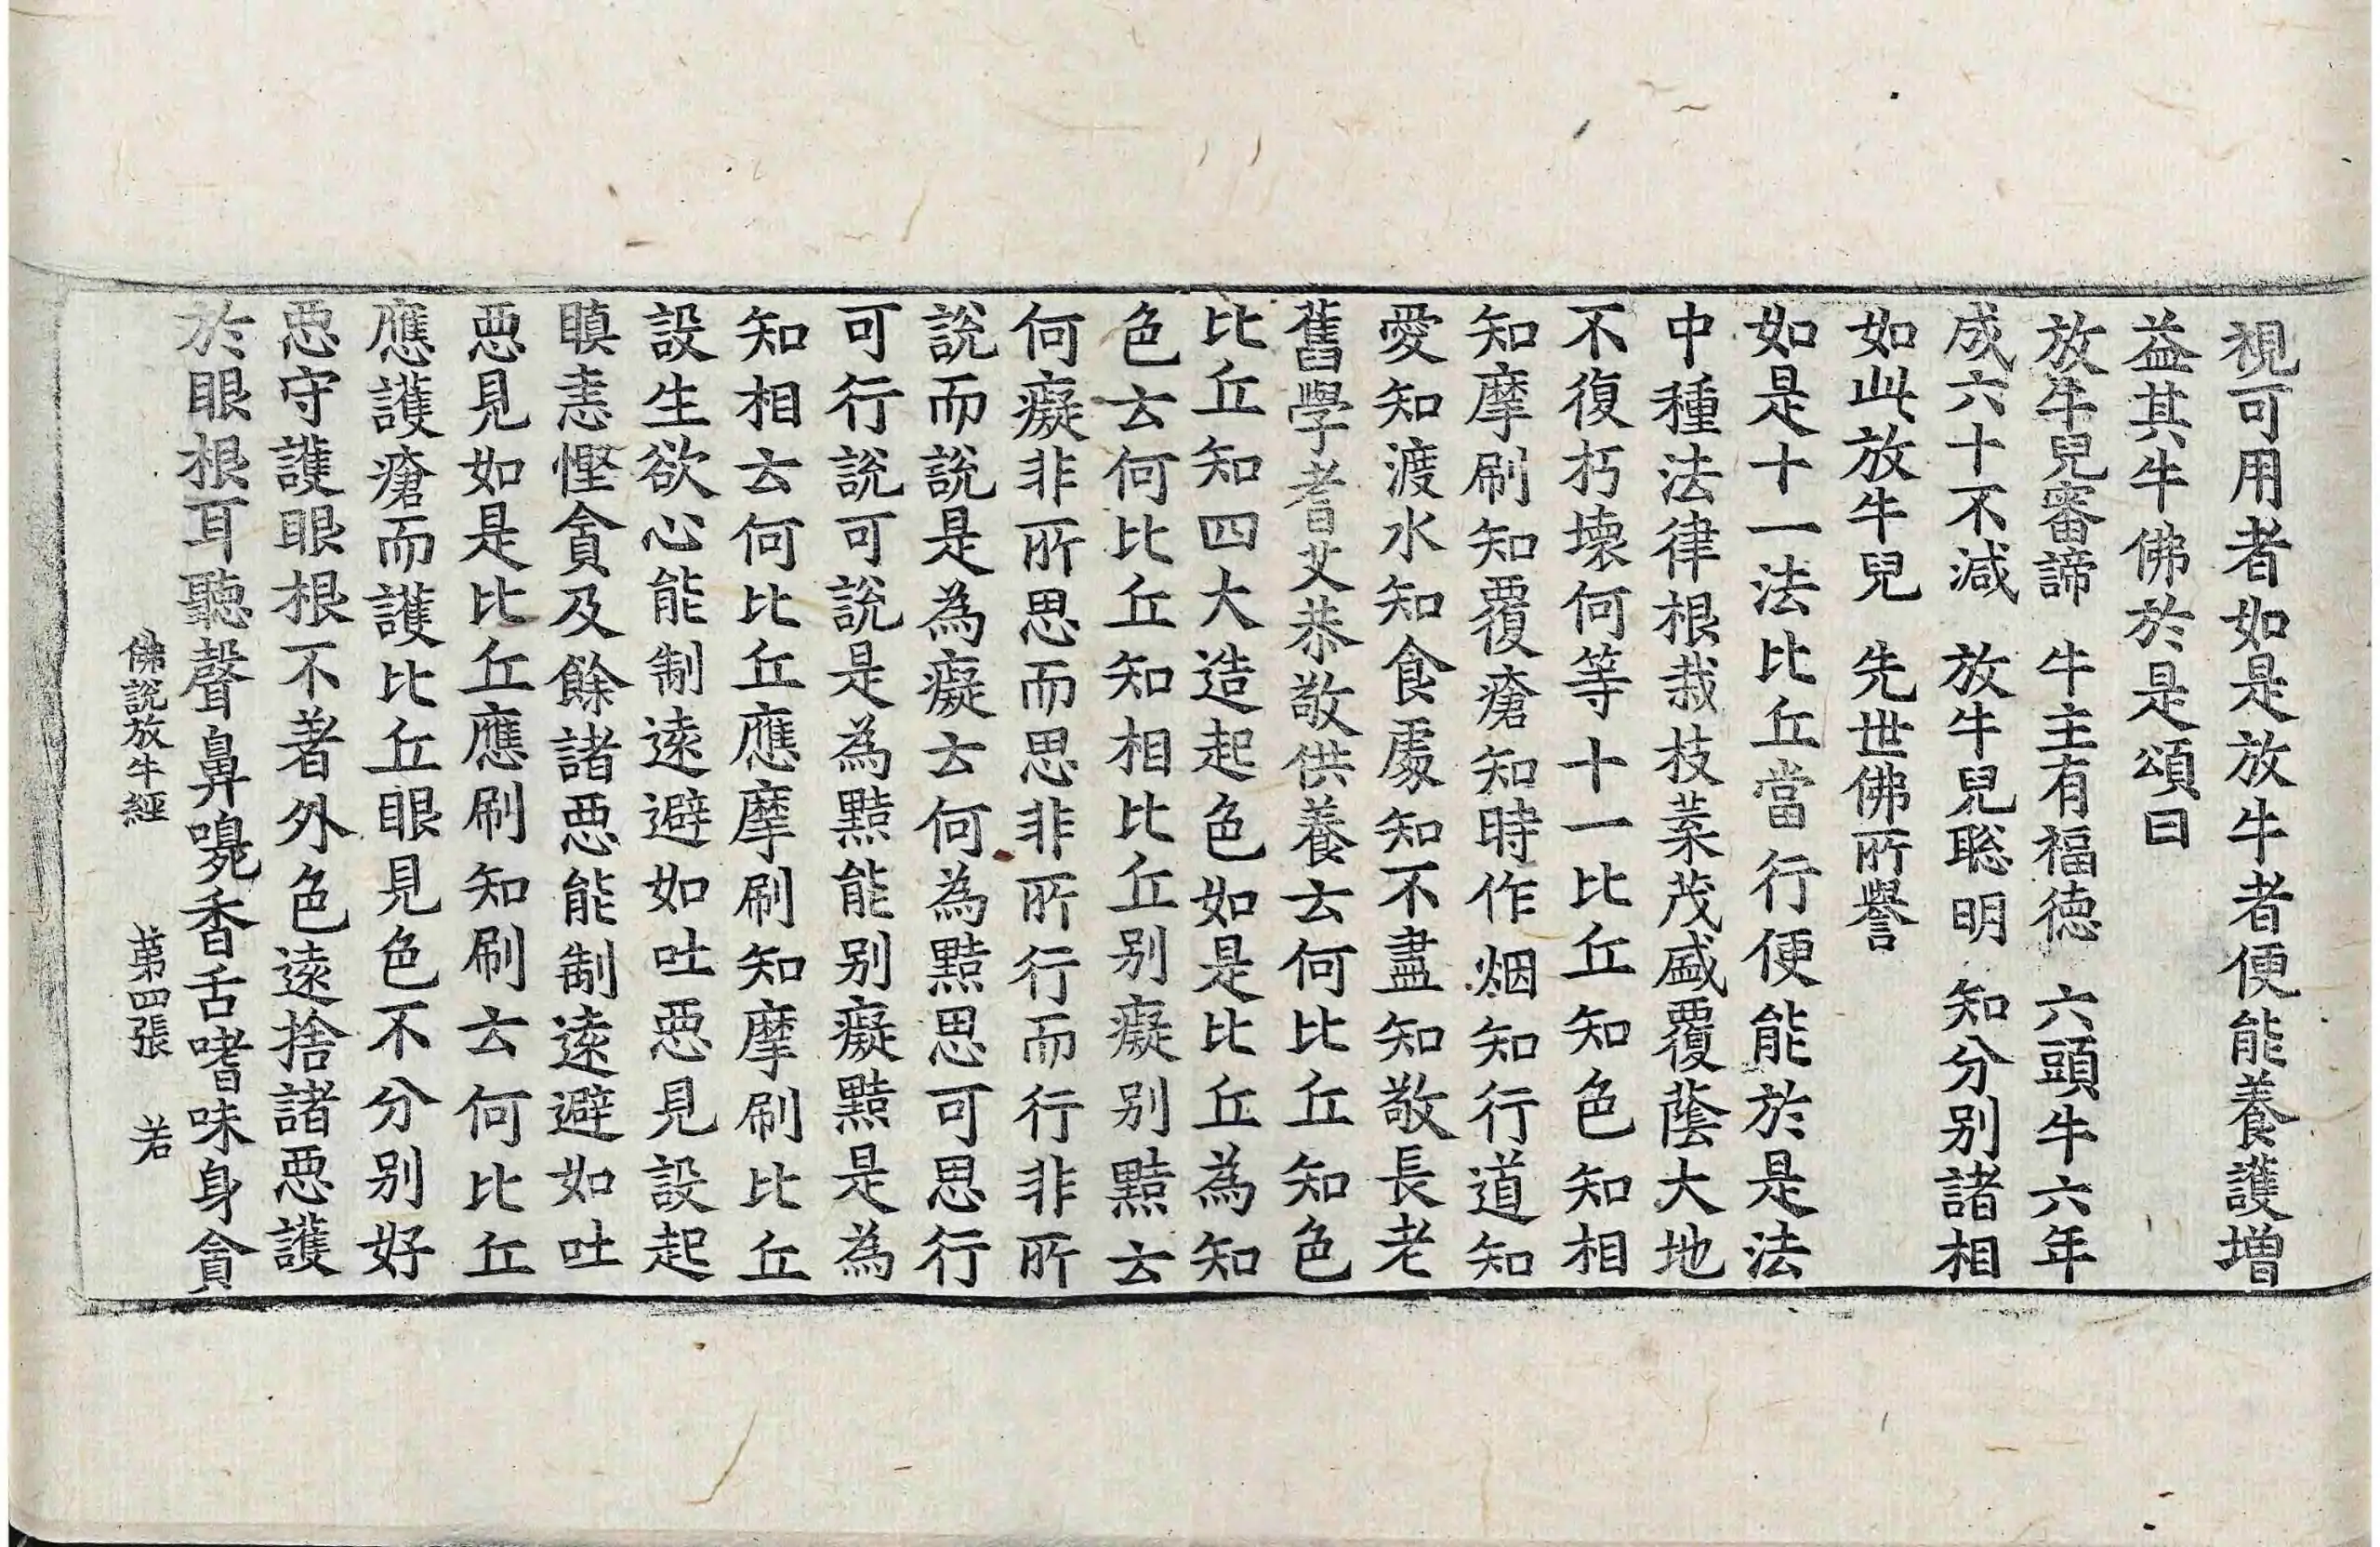 視可用者如是放牛者便能養護增
益其牛佛於是頌曰
放牛兒審諦　牛主有福德　六頭牛六年
成六十不減　放牛兒聡明　知分別諸相
如此放牛兒　先世佛所譽
如是十一法比丘當行便能於是法
中種法律根栽枝葉茂盛覆蔭大地
不復朽壞何等十一比丘知色知相
知摩刷知覆瘡知時作烟知行道知
愛知渡水知食處知不盡知敬長老
舊學耆艾恭敬供養云何比丘知色
比丘知四大造起色如是比丘為知
色云何比丘知相比丘別癡別黠云
何癡非所思而思非所行而行非所
說而說是為癡云何為黠思可思行
可行說可說是為黠能別癡黠是為
知相云何比丘應摩刷知摩刷比丘
設生欲心能制遠避如吐惡見設起
瞋恚慳貪及餘諸惡能制遠避如吐
惡見如是比丘應刷知刷云何比丘
應護瘡而護比丘眼見色不分別好
惡守護眼根不著外色遠捨諸惡護
於眼根耳聽聲鼻嗅香舌嗜味身貪
佛說放牛經　第四張　若